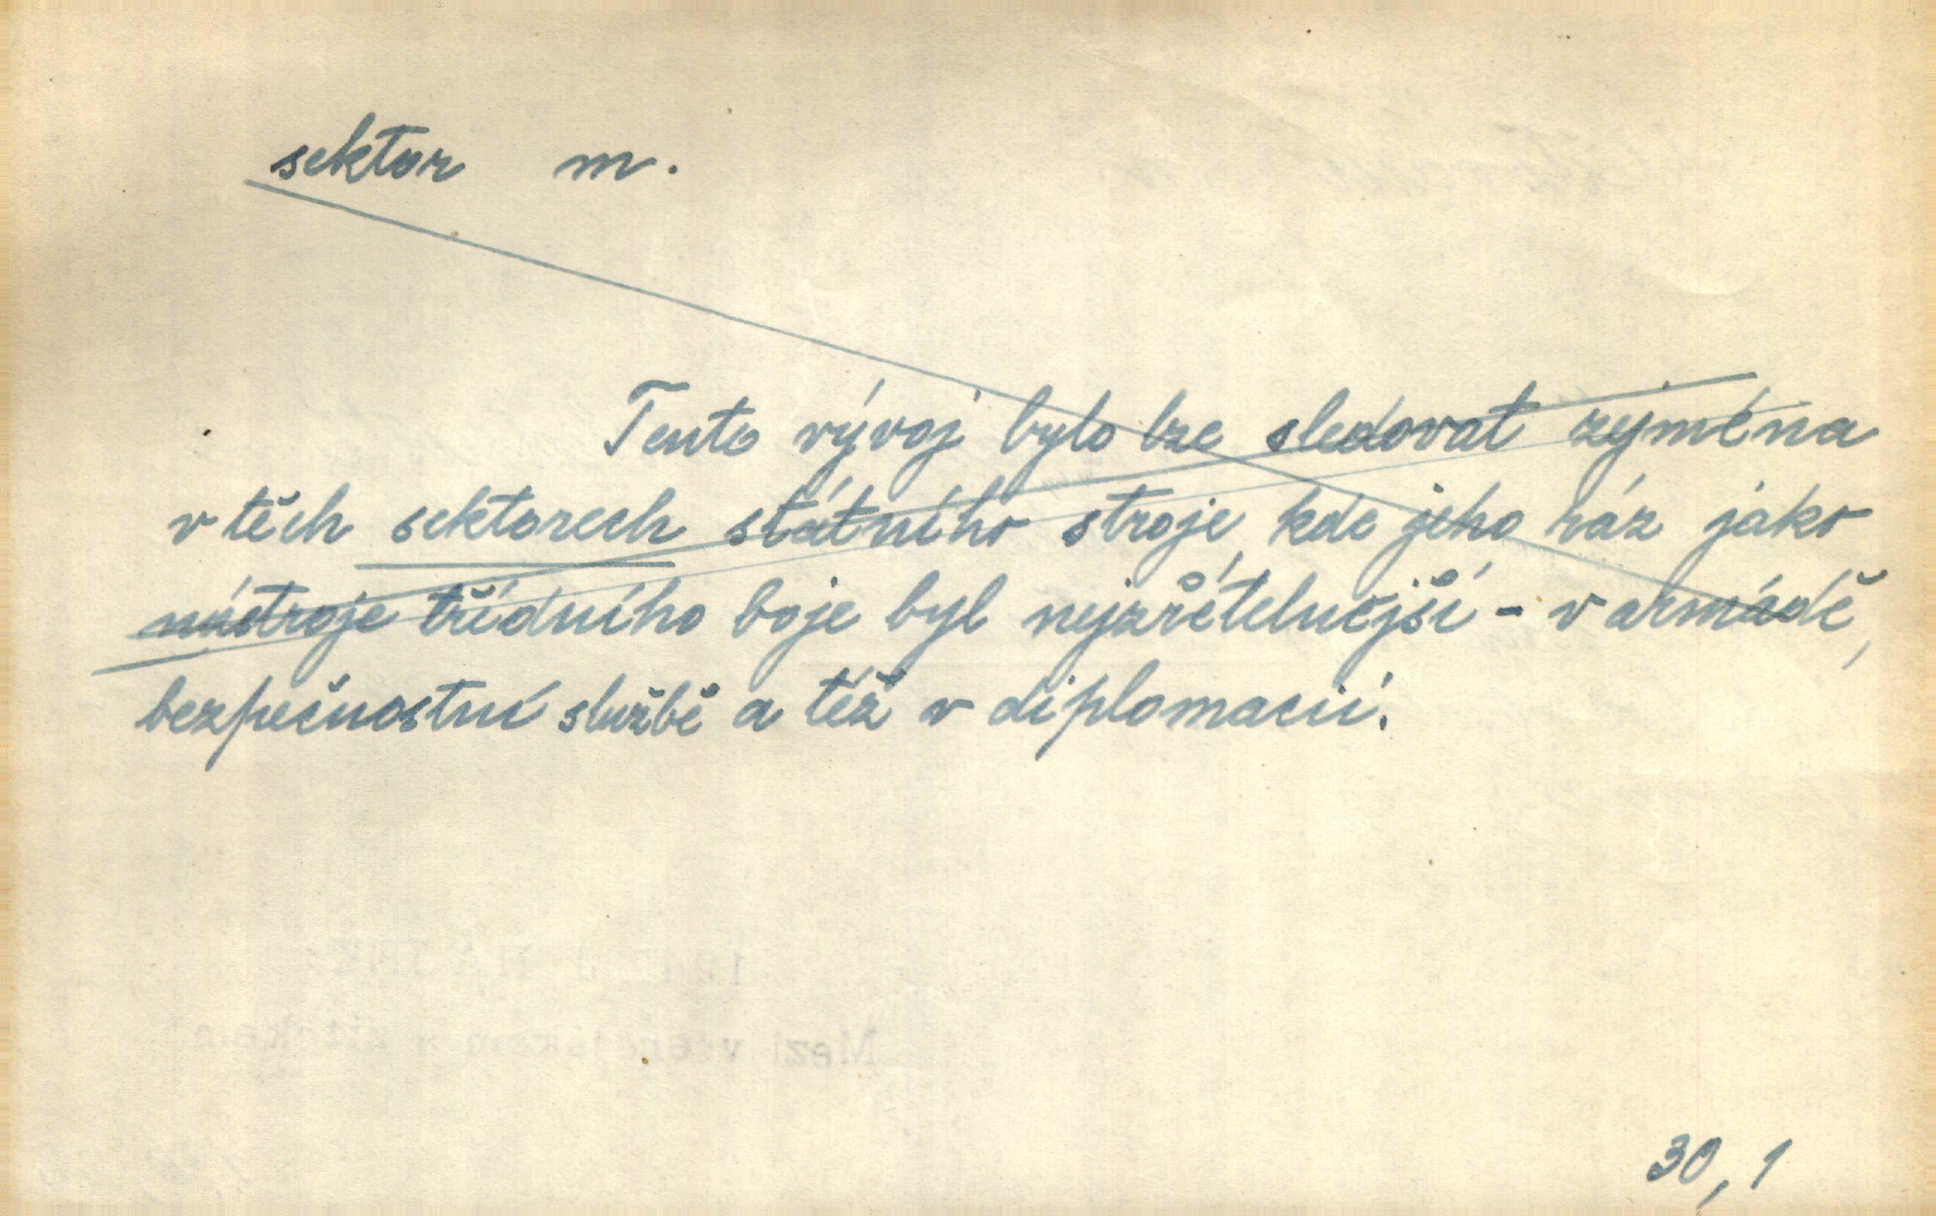 sektor m.
Tento vývoj bylo lze sledovat zejména
v těch sektorech státního stroje, kde jeho ráz jako
nástroje třídního boje byl nejzřetelnější - v armádě,
bezpečnostní službě a též v diplomacii.
30,1